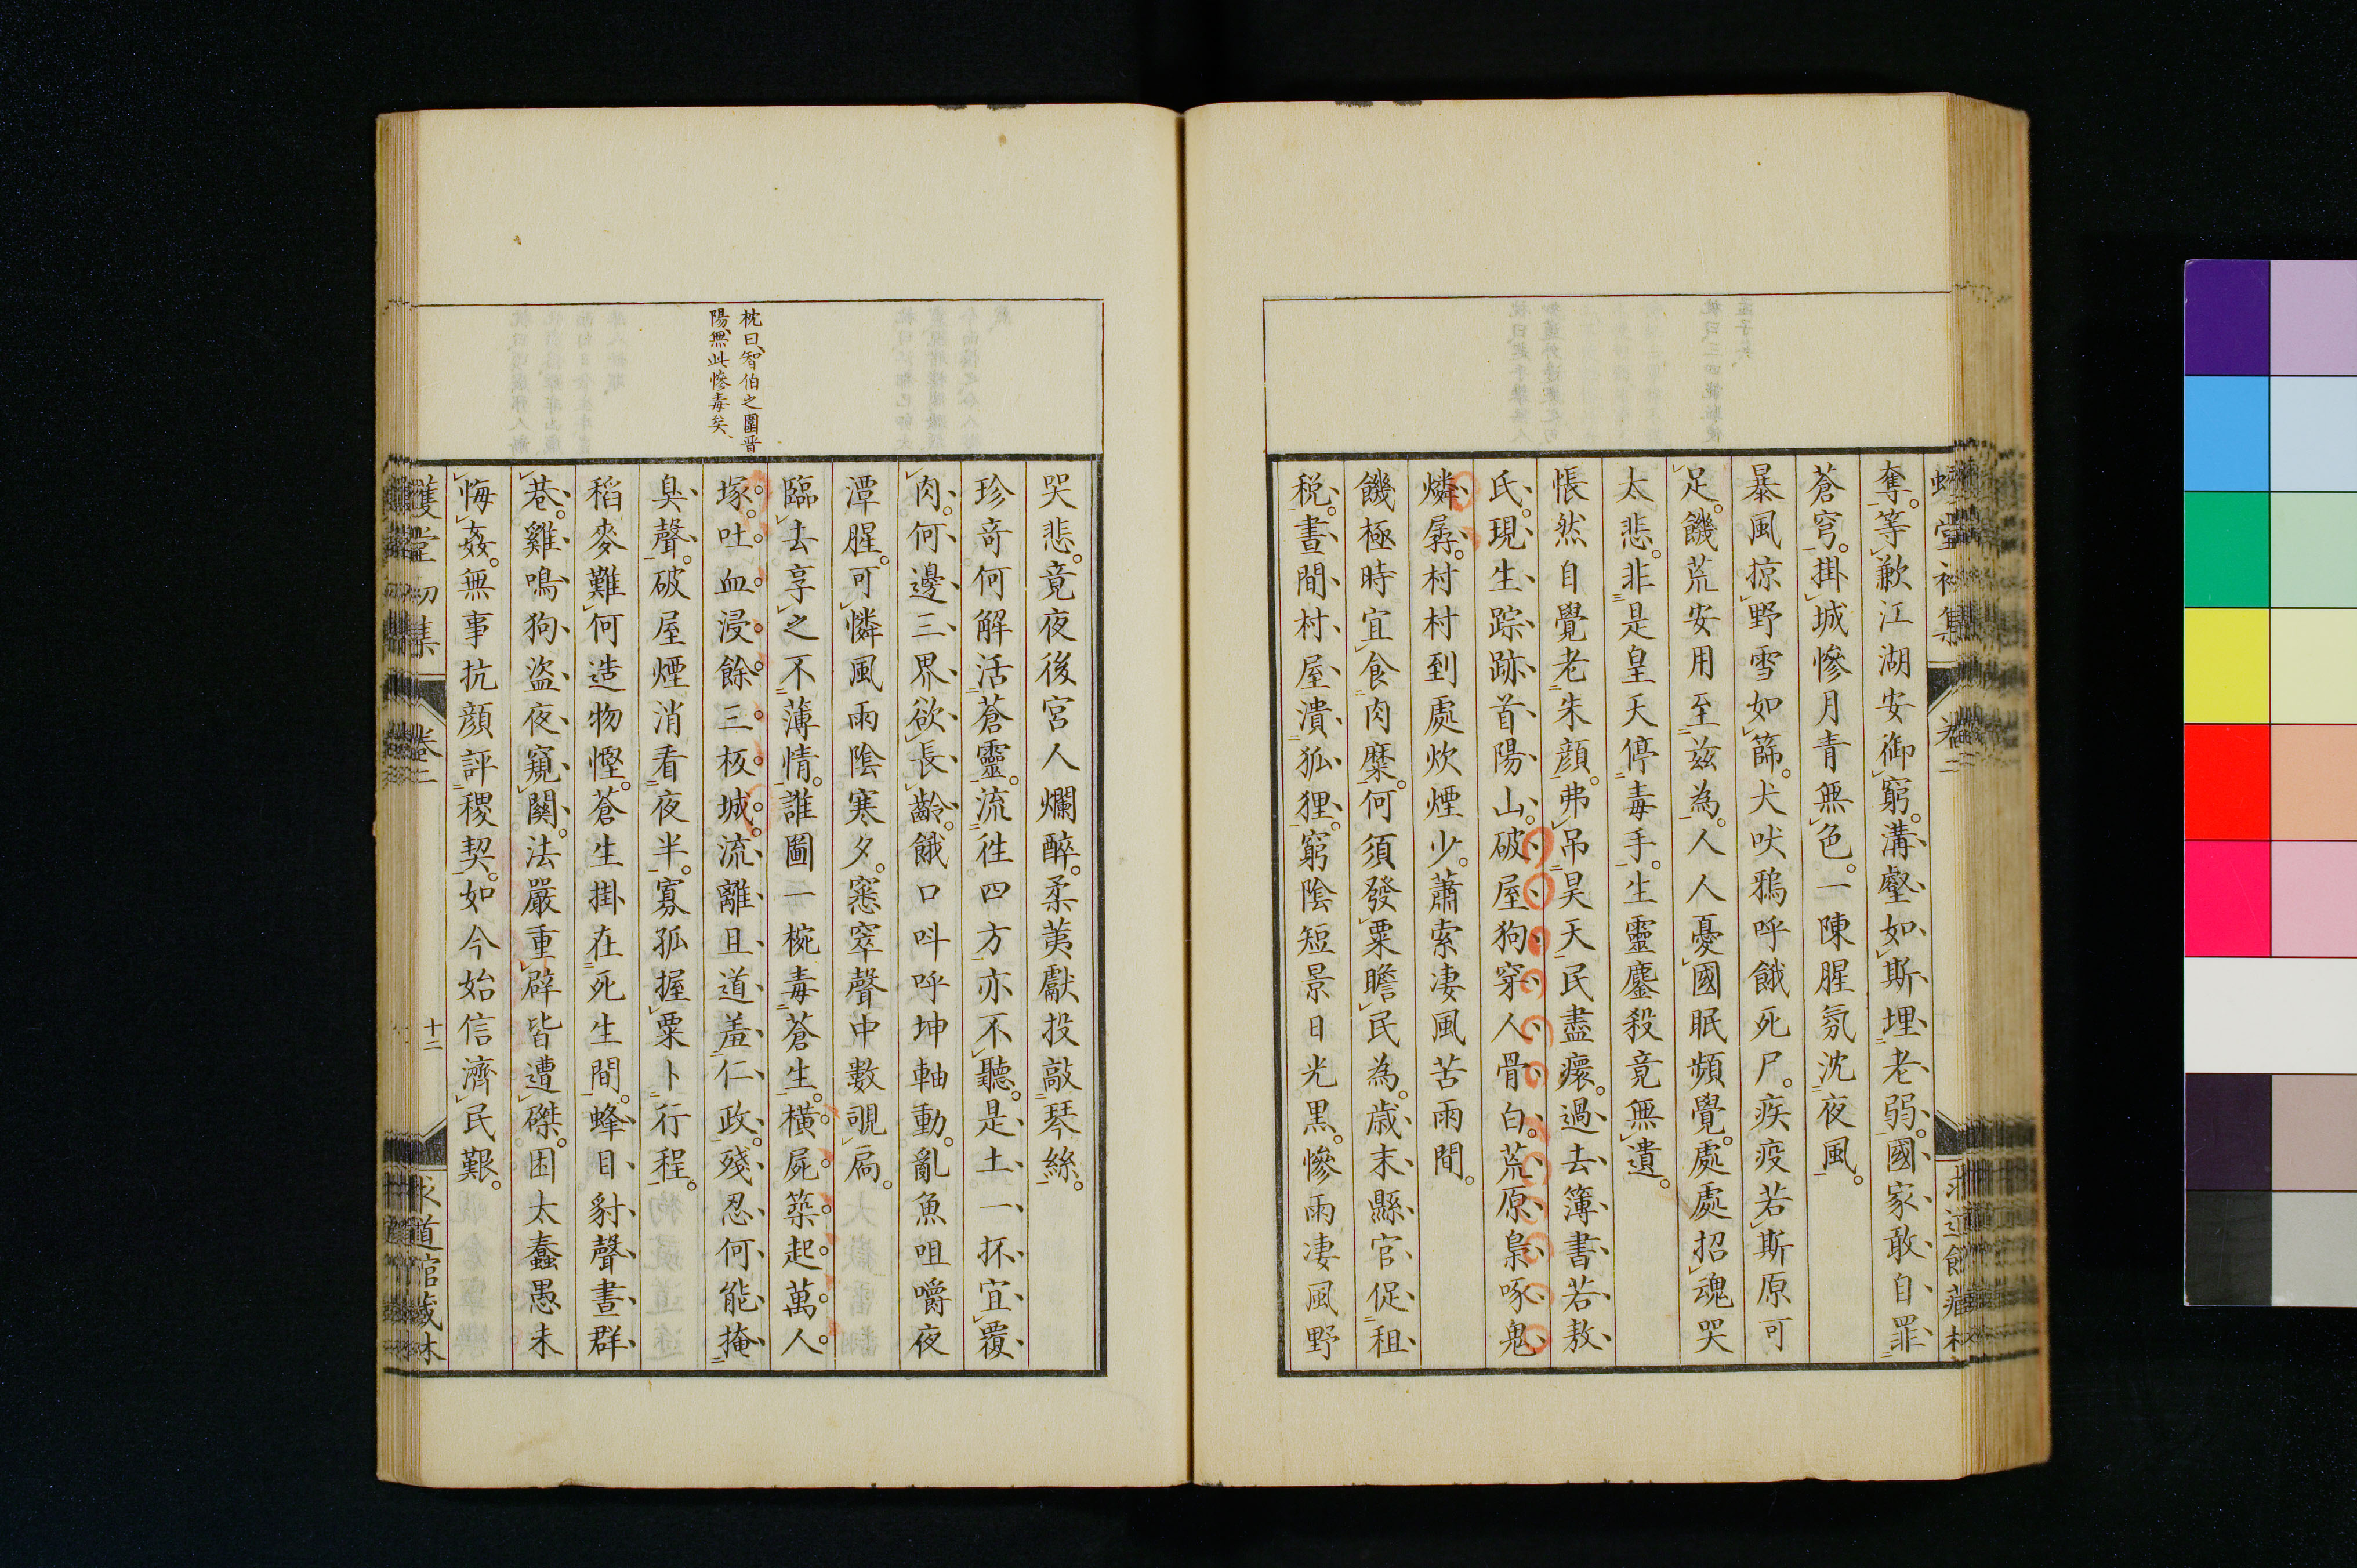 奪。等歉江湖安御窮。溝壑如斯埋老弱。國家敢自罪
蒼穹。掛城慘月青無色。一陳腥氛沈夜風。
暴風掠野雪如篩。犬吠鴉呼餓死尸。疾疫若斯原可
足。饑荒安用至茲為。人人憂國眠頻覺。處處招魂哭
太悲。非是皇天停毒手。生靈鏖殺竟無遺。
悵然自覺老朱顔。弗吊昊天民盡瘝。過去簿書若敖
氏。現生踪跡首陽山。破屋狗穿人骨白。荒原梟啄鬼
燐孱。村村到處炊煙少。蕭索凄風苦雨間。
饑極時宜食肉糜。何須發粟瞻民為。歳末縣官促租
税。晝間村屋潰狐狸。窮陰短景日光黒。慘雨凄風野
哭悲。竟夜後宮人爛醉。柔荑獻投敲琴絲。
珍奇何解活蒼靈。流徃四方亦不聽。是土一抔宜覆
肉。何邊三界欲長齡。餓口呌呼坤軸動。亂魚咀嚼夜
潭腥。可憐風雨陰寒夕。窸窣聲中數覗扃。
臨去享之不薄情。誰圖一椀毒蒼生。横屍築起萬人
塚。吐血浸餘三板城。流離且道羞仁政。殘忍何能掩
臭聲。破屋煙消看夜半。寡孤握粟卜行程。
稻麥難何造物慳。蒼生掛在死生間。蜂目豺聲晝群
巷。雞鳴狗盗夜窺關。法嚴重辟皆遭磔。困太蠢愚未
悔姦。無事抗顔評稷契。如今始信濟民艱。
枕曰、智伯之圍晋
陽、無此慘毒矣、
卷二
十二